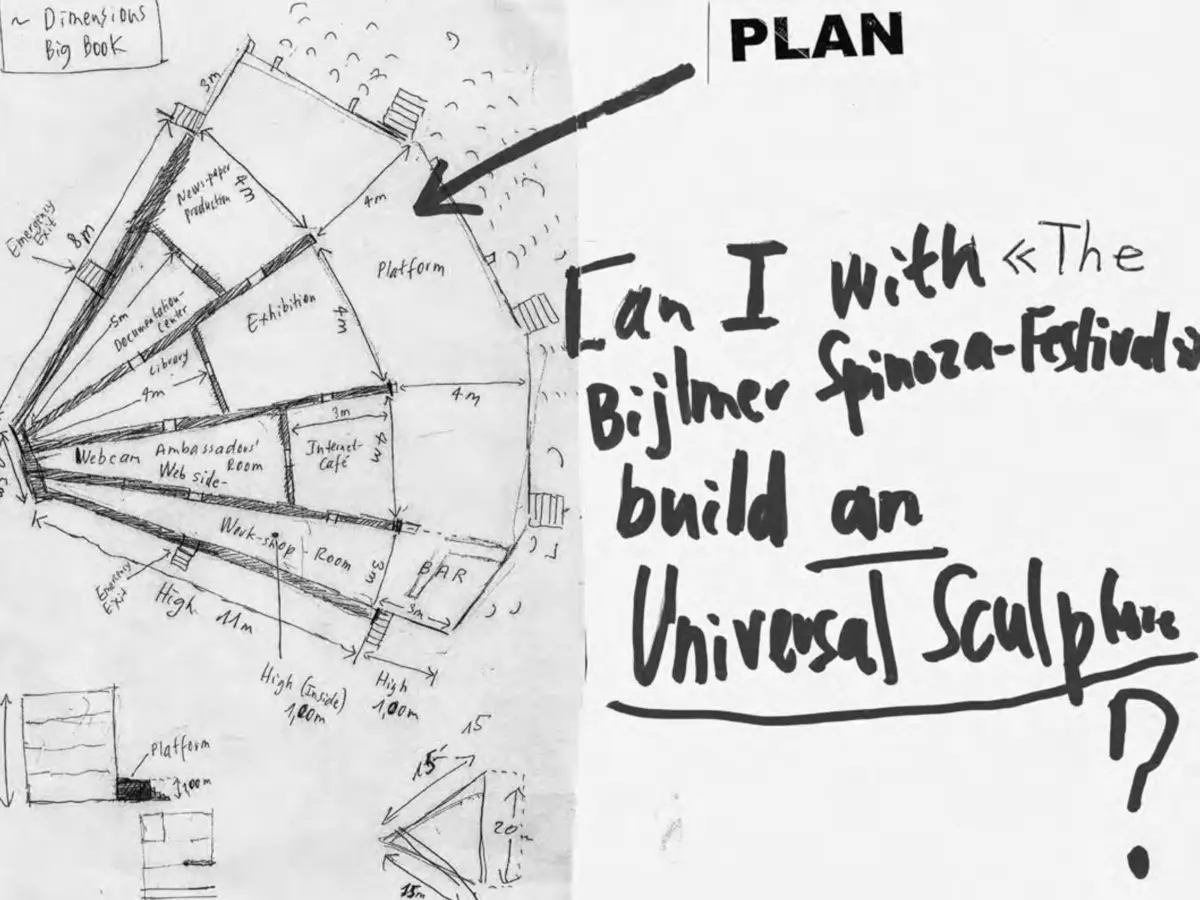 ~ Dimensions
Big Book
PLAN
3m
Newspaper
production
4m
4m
Platform
Emergency
Exit
8m
5m
Documentation-
Center
Exhibition
4m
Library
4m
4m
3m
Webcam Ambassadors'
Room
Web side-
Internet-
Café
4m
Work-shop-Room
3m
BAR
3m
Emergency
Exit
High
11m
High (Inside)
1,00m
High
1,00m
Platform
1,00m
15
15
20m
15m
Can I with «The
Bijlmer Spinoza-Festival»
build an
Universal Sculpture
?